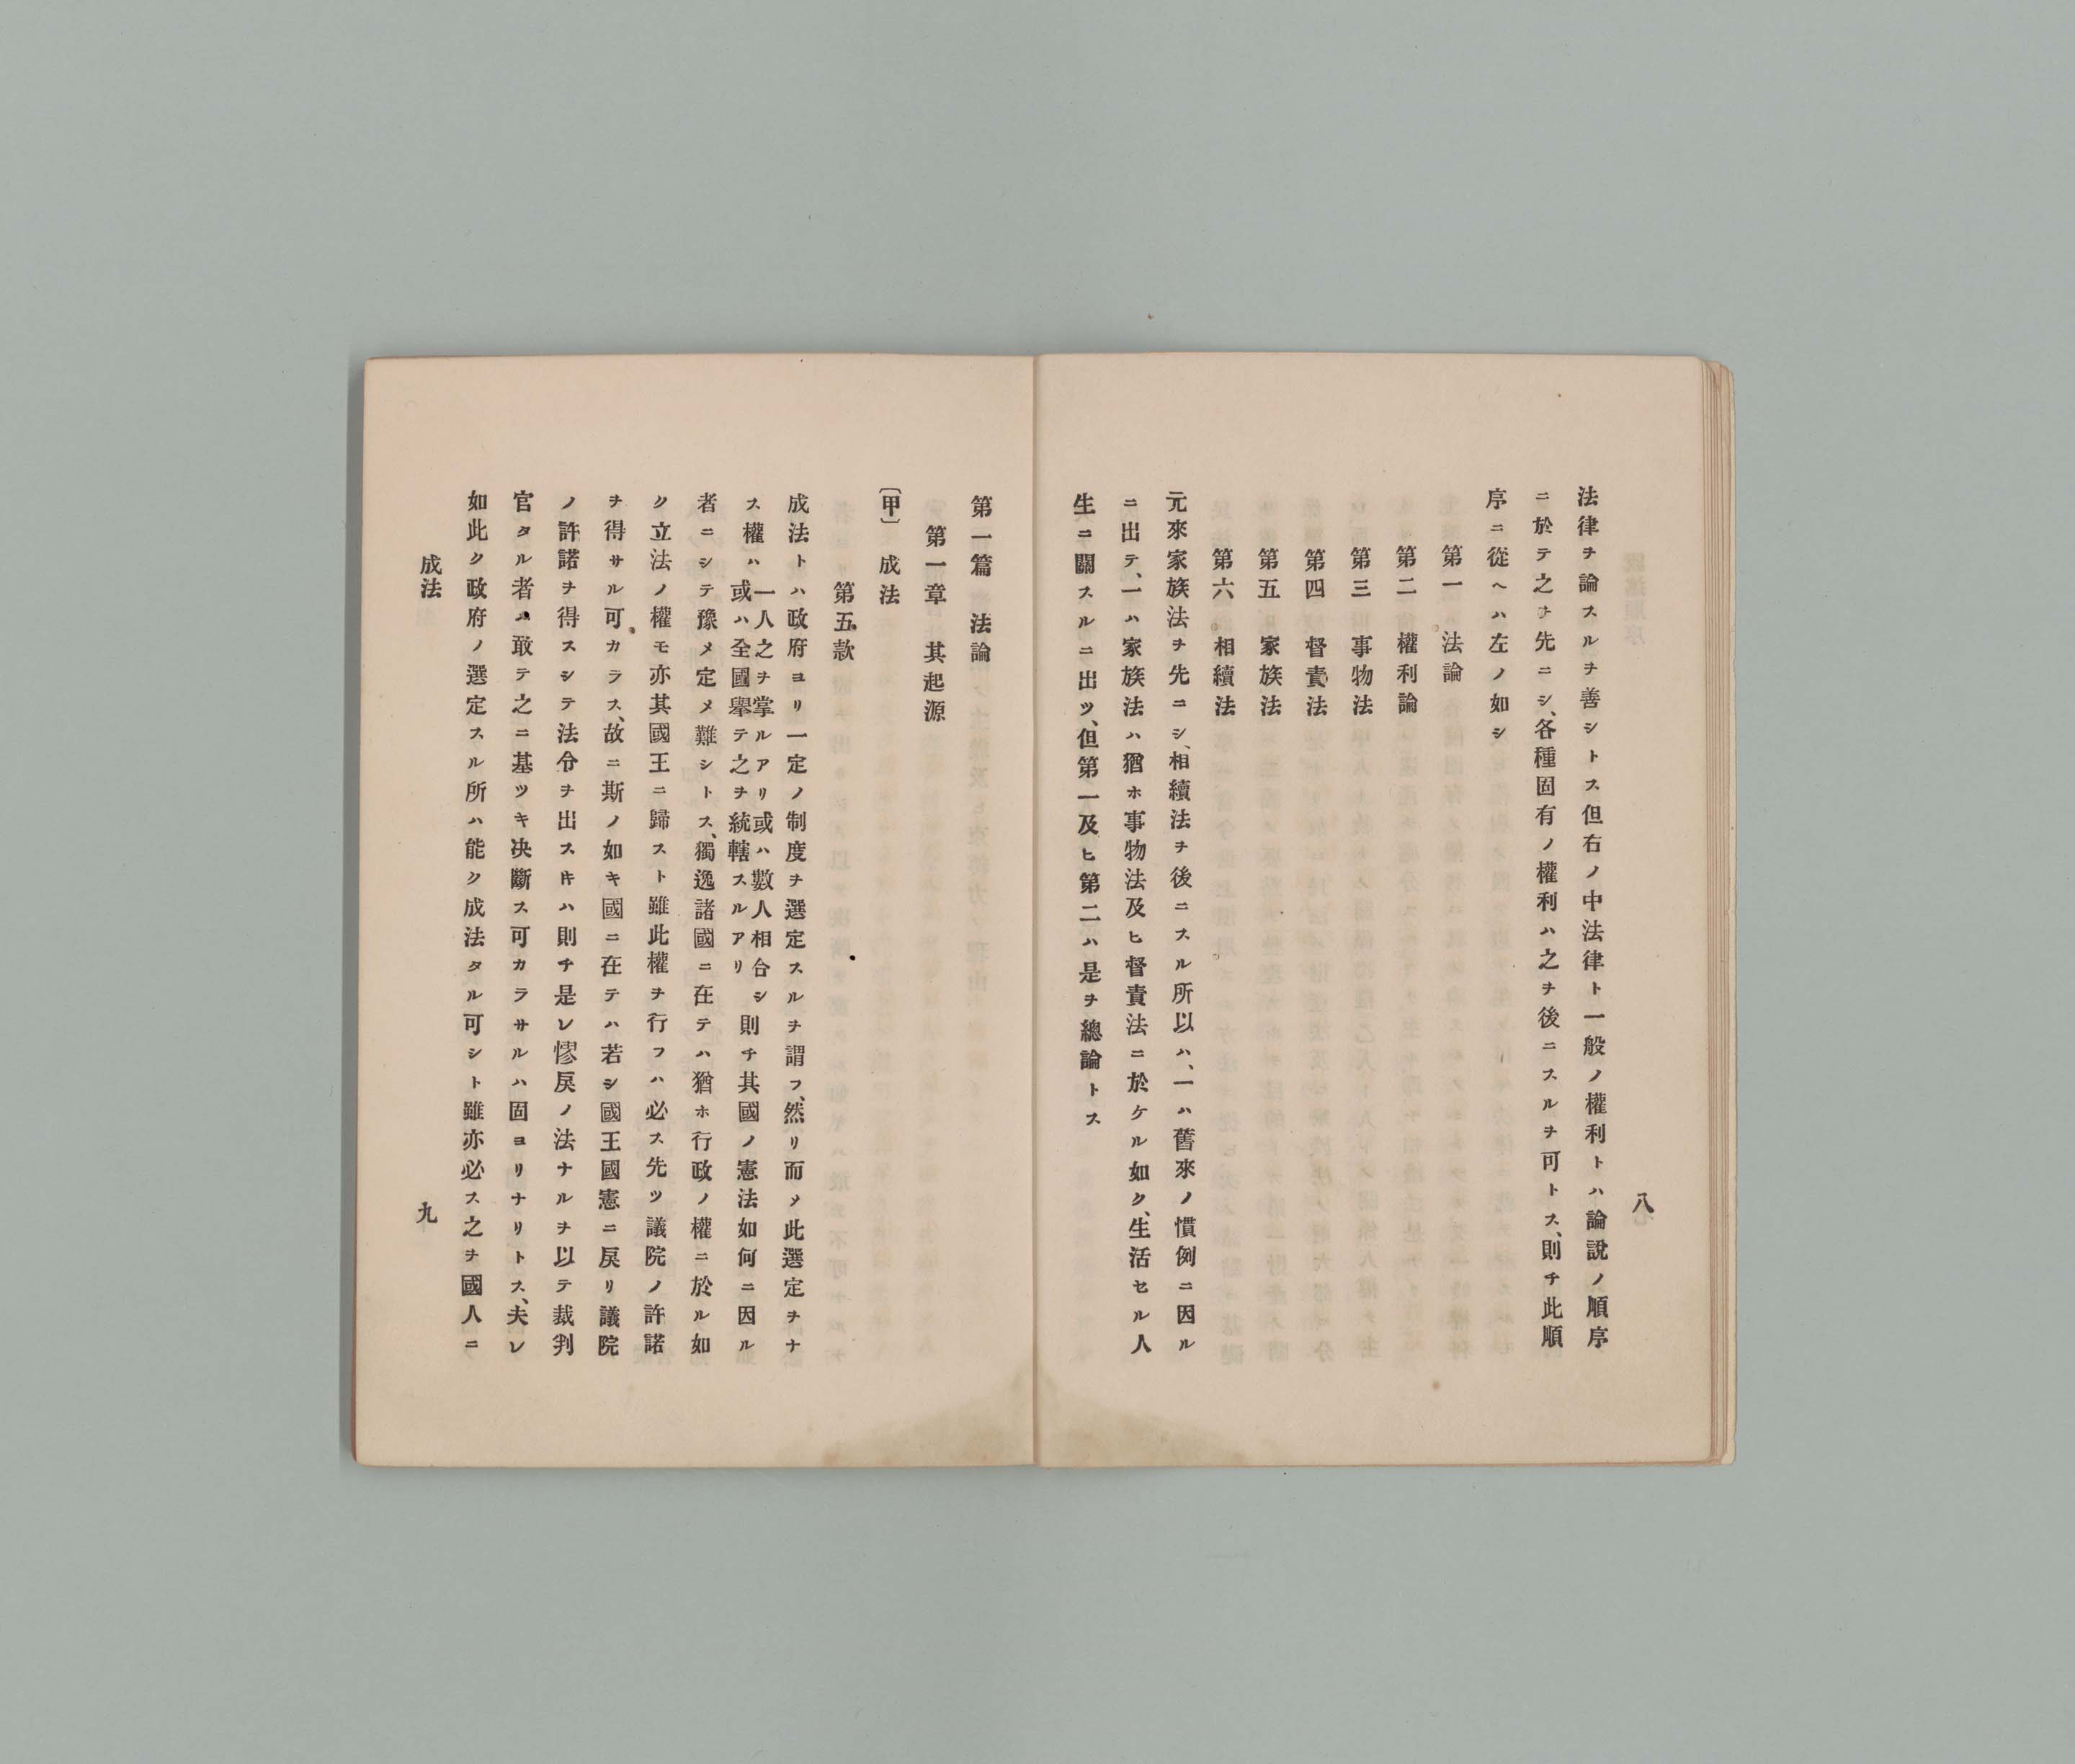 八
法律ヲ論スルヲ善シトス但右ノ中法律ト一般ノ權利トハ論說ノ順序
ニ於テ之ヲ先ニシ、各種固有ノ權利ハ之ヲ後ニスルヲ可トス、則チ此順
序ニ從ヘハ左ノ如シ
第一　法論
第二　權利論
第三　事物法
第四　督責法
第五　家族法
第六　相續法
元來家族法ヲ先ニシ、相續法ヲ後ニスル所以ハ、一ハ舊來ノ慣例ニ因ル
ニ出テ、一ハ家族法ハ猶ホ事物法及ヒ督責法ニ於ケル如ク、生活セル人
生ニ關スルニ出ツ、但第一及ヒ第二ハ是ヲ總論トス
第一篇　法論
第一章　其起源
〔甲〕　成法
第五款
成法トハ政府ヨリ一定ノ制度ヲ選定スルヲ謂フ、然リ而メ此選定ヲナ
ス權ハ
一人之ヲ掌ルアリ或ハ數人相合シ
或ハ全國擧テ之ヲ統轄スルアリ
則チ其國ノ憲法如何ニ因ル
者ニシテ豫メ定メ難シトス、獨逸諸國ニ在テハ猶ホ行政ノ權ニ於ル如
ク立法ノ權モ亦其國王ニ歸スト雖此權ヲ行フハ必ス先ツ議院ノ許諾
ヲ得サル可カラス、故ニ斯ノ如キ國ニ在テハ若シ國王國憲ニ戾リ議院
ノ許諾ヲ得スシテ法令ヲ出スキハ則チ是レ憀戾ノ法ナルヲ以テ裁判
官タル者ハ敢テ之ニ基ツキ决斷ス可カラサルハ固ヨリナリトス、夫レ
如此ク政府ノ選定スル所ハ能ク成法タル可シト雖亦必ス之ヲ國人ニ
成法
九